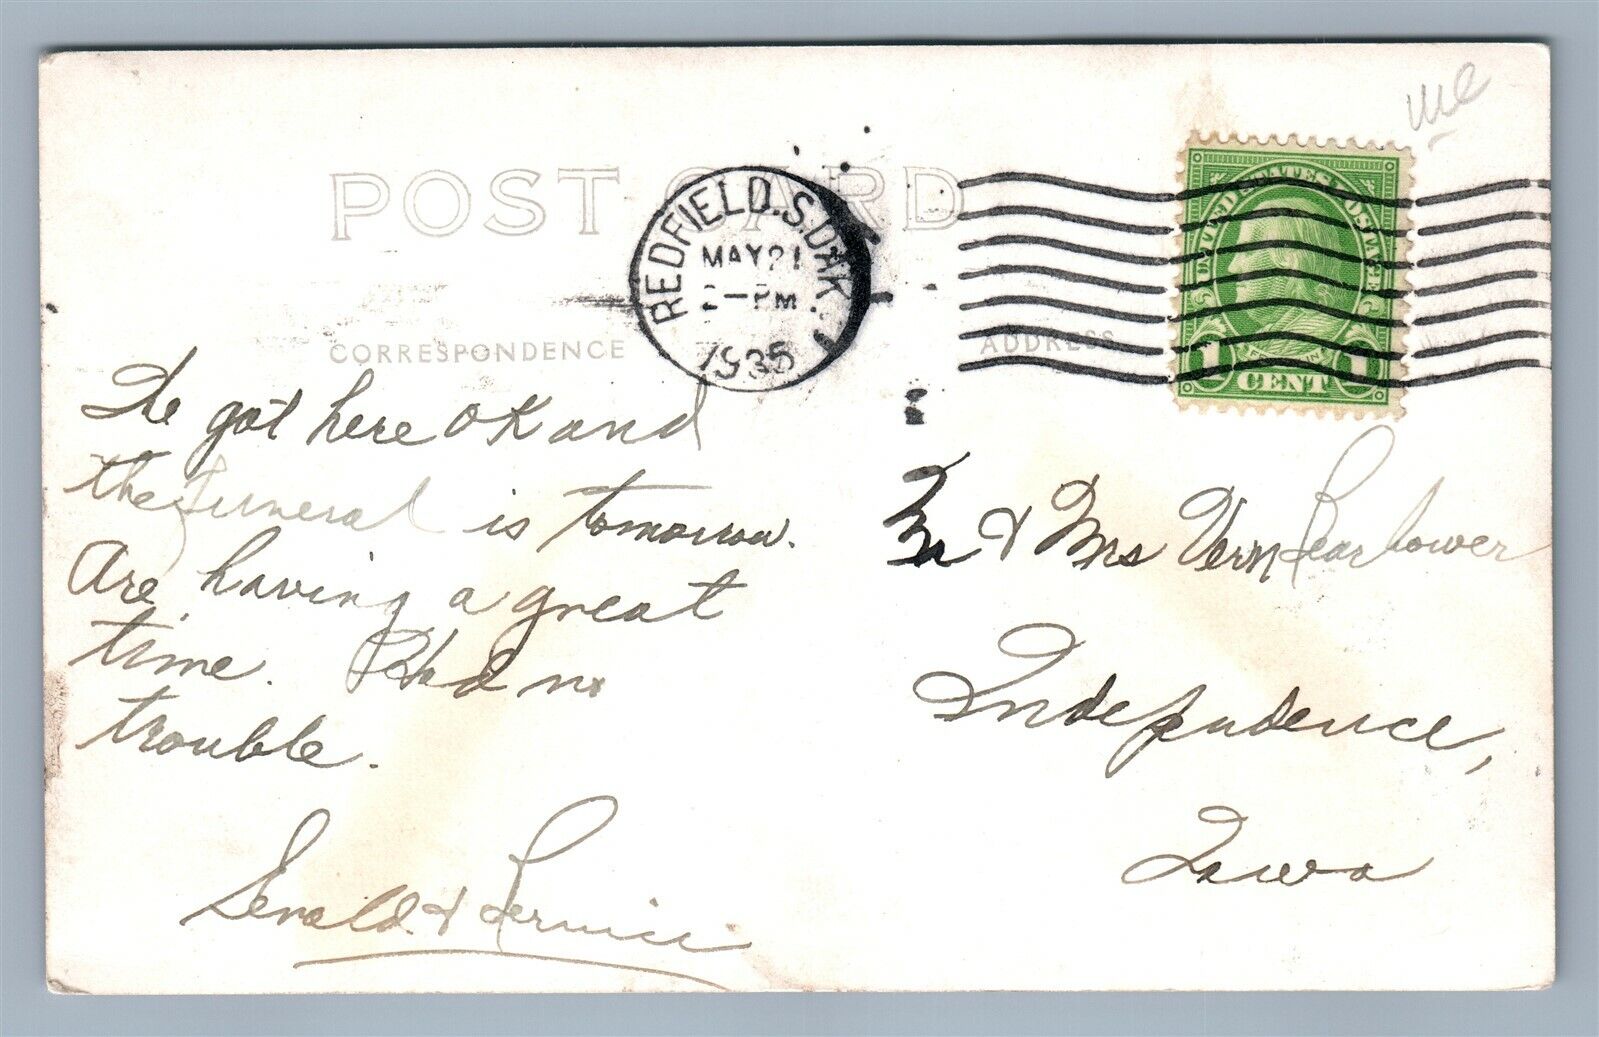 me
POST CARD
REDFIELD.S.DAK.
MAY 21
2-PM
1935
UNITED STATES POSTAGE
FRANKLIN
1 CENT 1
CORRESPONDENCE
ADDRESS
We got here OK and
the funeral is tomorrow.
Are having a great
time. Had no
trouble.
Gerald & Bernice
Mr & Mrs Vern
Independence,
Iowa